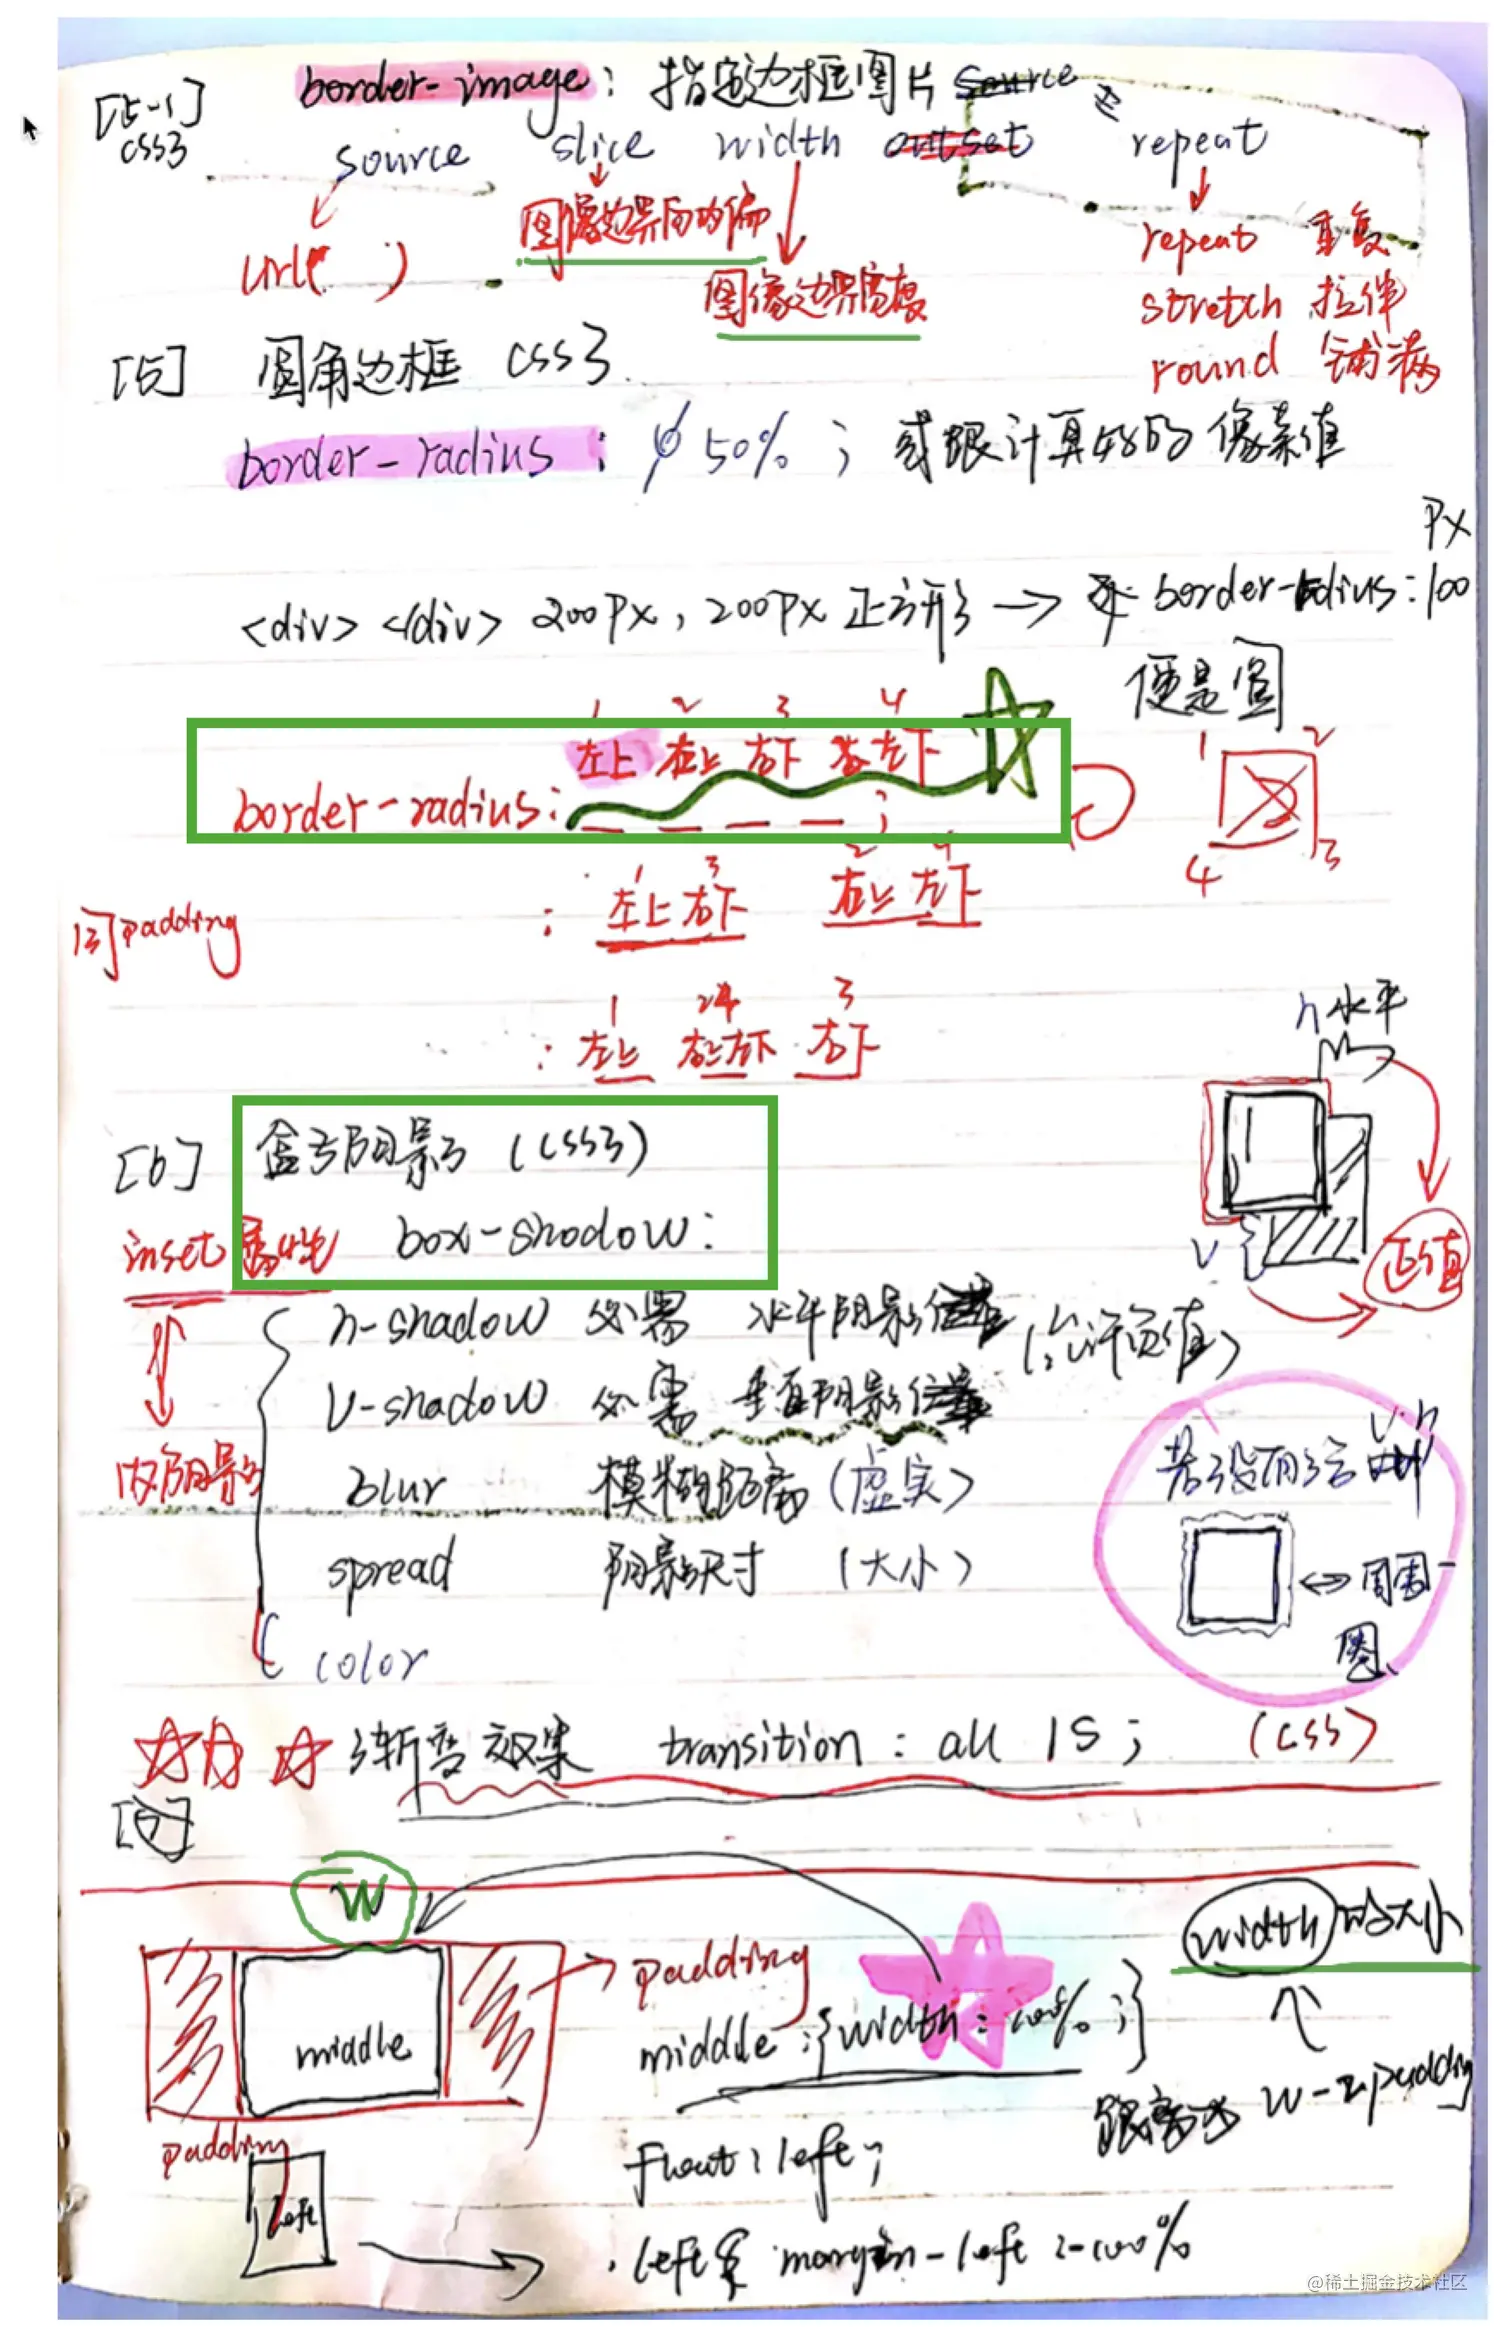 [5-1] border-image: 指定边框图片 source
css3
source slice width outset repeat
url( )
图像边界向内偏
图像边界宽度
repeat 重复
stretch 拉伸
round 铺满
[5] 圆角边框 css3
border-radius: 50%; 或跟计算好的像素值
px
<div></div> 200px, 200px 正方形 → border-radius: 100
便是圆
1 2 3 4
左上 右上 右下 左下
border-radius: _ _ _ _ ;
1 2
4 3
1 3 2 4
同padding : 左上右下 右上左下
1 24 3
: 左上 右上左下 右下
h 水平
[6] 盒子阴影 (css3)
inset 属性 box-shadow:
v
正值
h-shadow 必需 水平阴影位置 (允许负值)
v-shadow 必需 垂直阴影位置
内阴影
blur 模糊距离 (虚实)
v h
若没有给
spread 阴影尺寸 (大小)
周围一圈
color
渐变效果 transition: all 1s; (css)
[7]
W
width 的大小
padding
middle
middle: {width: 100%; }
W-2padding
padding
float: left;
left
left margin-left:-100%
@稀土掘金技术社区